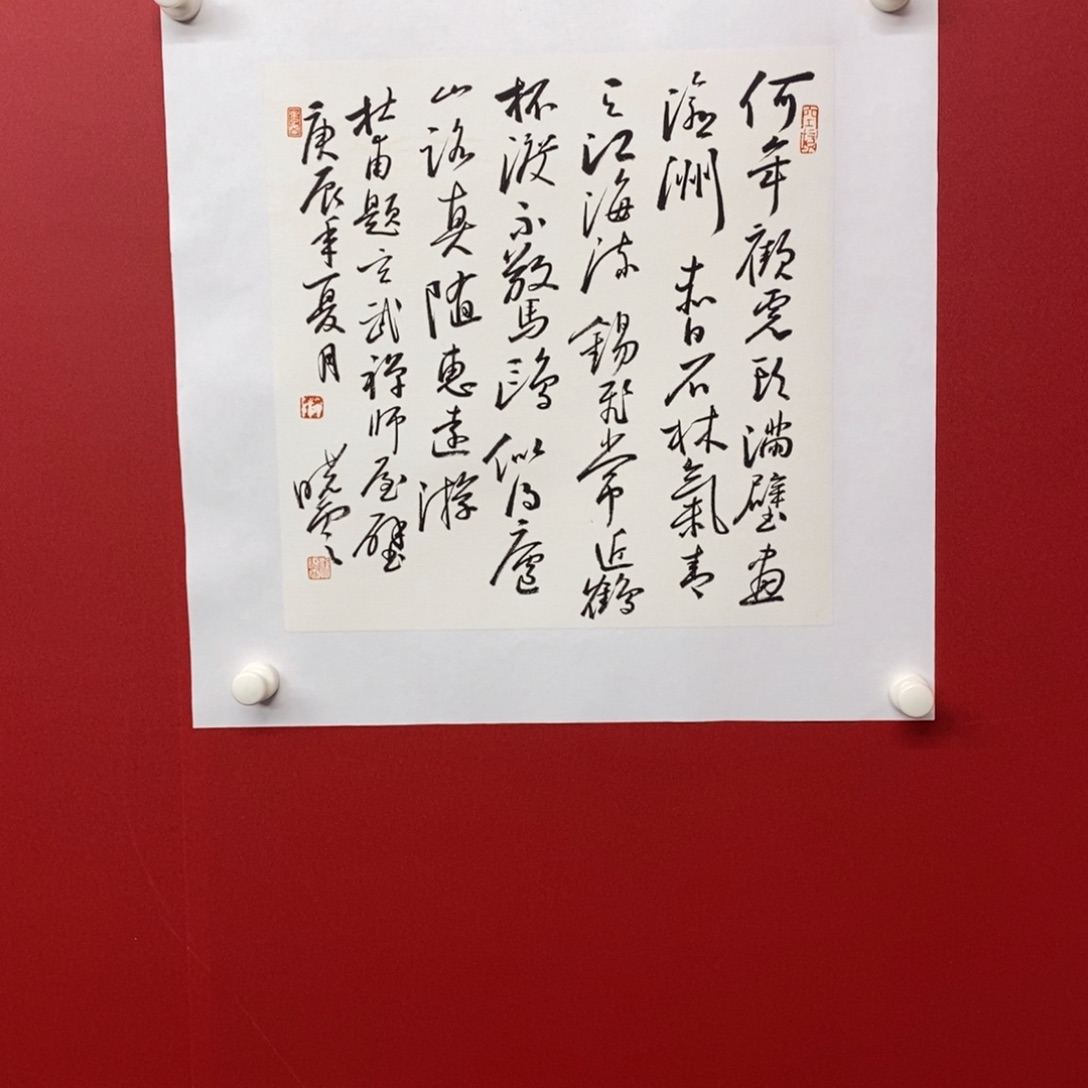 何年顧虎頭滿壁畫
瀛洲赤日石林氣青
天江海流錫飛常近鶴
杯渡不驚鷗似得廬
山路真随惠遠游
杜甫題玄武禪師屋壁
庚辰年夏月 曉雲